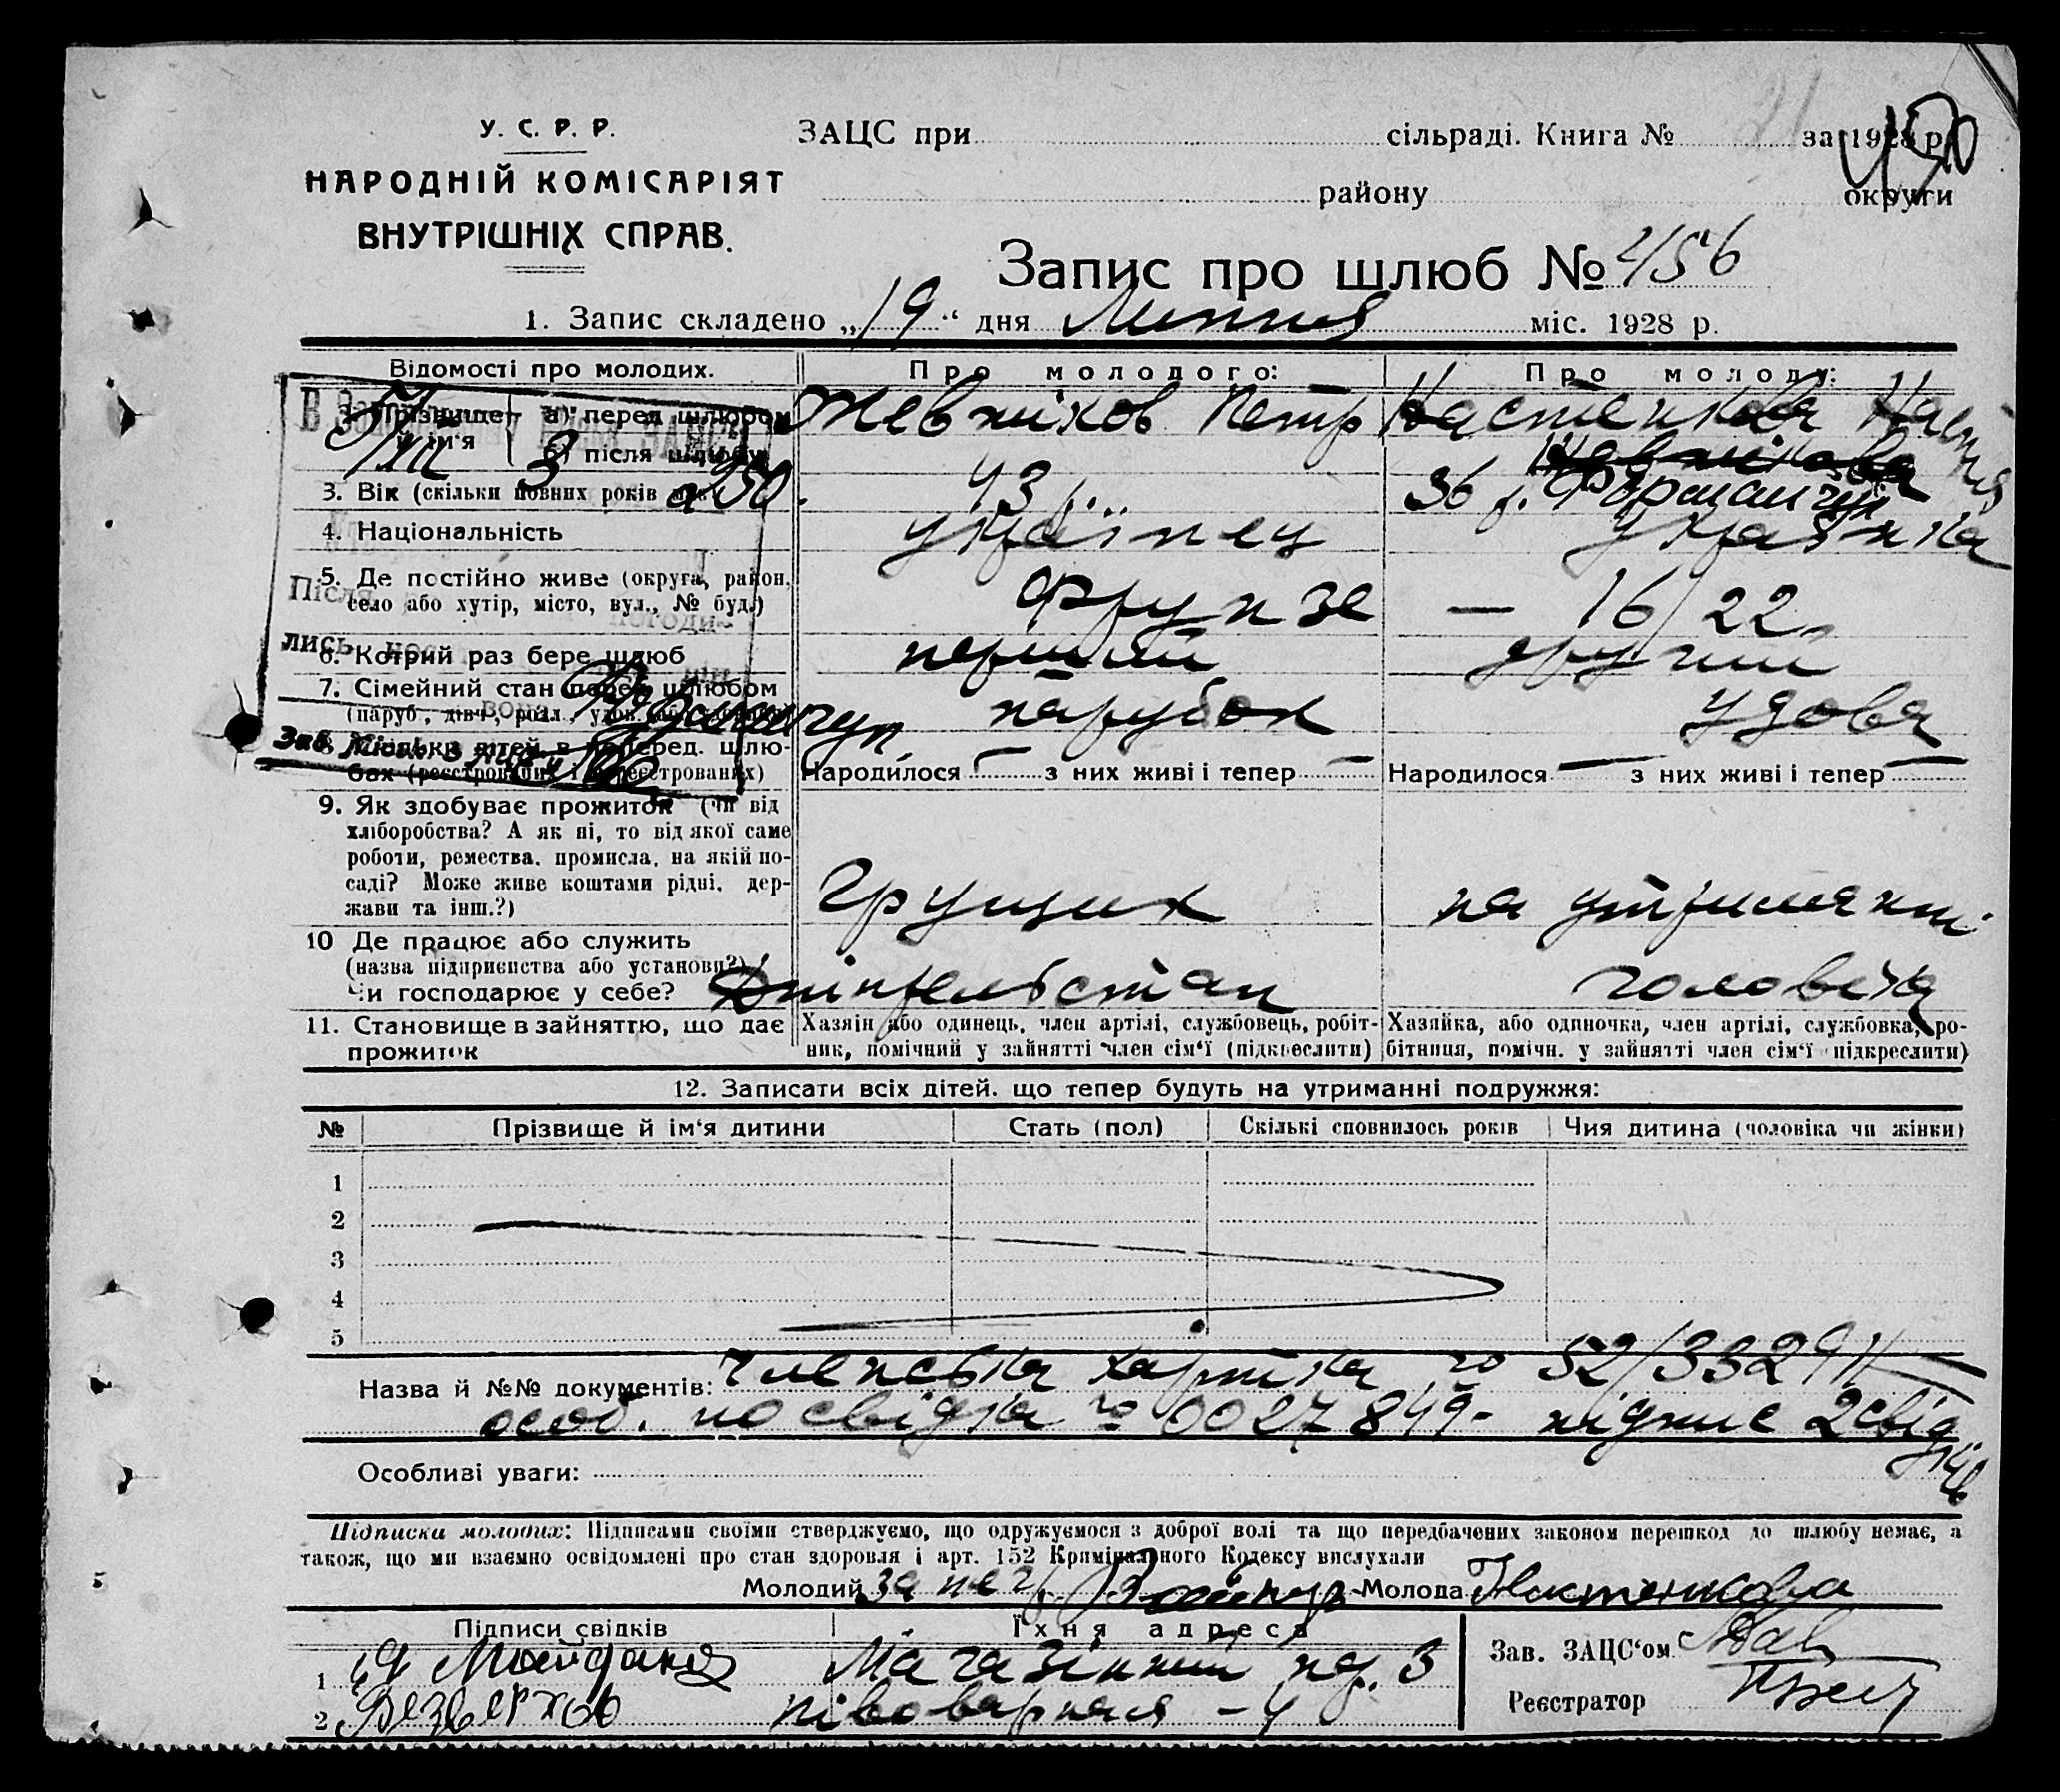 У. С. Р. Р.
НАРОДНІЙ КОМІСАРІЯТ
ВНУТРІШНІХ СПРАВ.
ЗАЦС при сільраді. Книга № 21 за 1928 р.
району округи
Запис про шлюб № 456
1. Запис складено „19“ дня Липня міс. 1928 р.
Відомості про молодих. Про молодого: Про молоду:
Прізвище й ім‘я а) перед шлюбом Петр Настенкова
б) після шлюбу
3. Вік (скільки повних років 43 р. 36 р.
4. Національність українец українка
5. Де постійно живе (округа, район, село або хутір, місто, вул., № буд.) Фрунзе — 16/22
6. Котрий раз бере шлюб перший другий
7. Сімейний стан перед шлюбом парубок удова
Народилося з них живі і тепер Народилося з них живі і тепер
9. Як здобуває прожиток (чи від
хліборобства? А як ні, то від якої саме
роботи, ремества, промисла, на якій по-
саді? Може живе коштами рідні, дер-
жави та інш.?)
грущик на утриманні
10 Де працює або служить
(назва підприємства або установи?)
Чи господарює у себе?
чоловіка
11. Становище в зайняттю, що дає
прожиток
Хазяін або одинець, член артілі, службовець, робіт-
ник, помічний у зайнятті член сім‘ї (підкреслити)
Хазяйка, або одиночка, член артілі, службовка, ро-
бітниця, помічн. у зайнятті член сім‘ї (підкреслити)
12. Записати всіх дітей, що тепер будуть на утриманні подружжя:
№ Прізвище й ім‘я дитини Стать (пол) Скількі сповнилось років Чия дитина (чоловіка чи жінки)
1
2
3
4
5
Назва й №№ документів: членська картка № 52/33294
особ. посвідка № 0027849 - підпис 2 свід
Особливі уваги:
Підписка молодих: Підписами своїми стверджуємо, що одружуємося з доброї волі та що передбачених законом перешкод до шлюбу немає, а
також, що ми взаємно освідомлені про стан здоровля і арт. 152 Кримінального Кодексу вислухали
Молодий за негр. Молода Настенкова
Підписи свідків Їхня адреса
1 Магазінний пр. 3
2 Безверхов півоварная - 4
Зав. ЗАЦС‘ом
Реєстратор